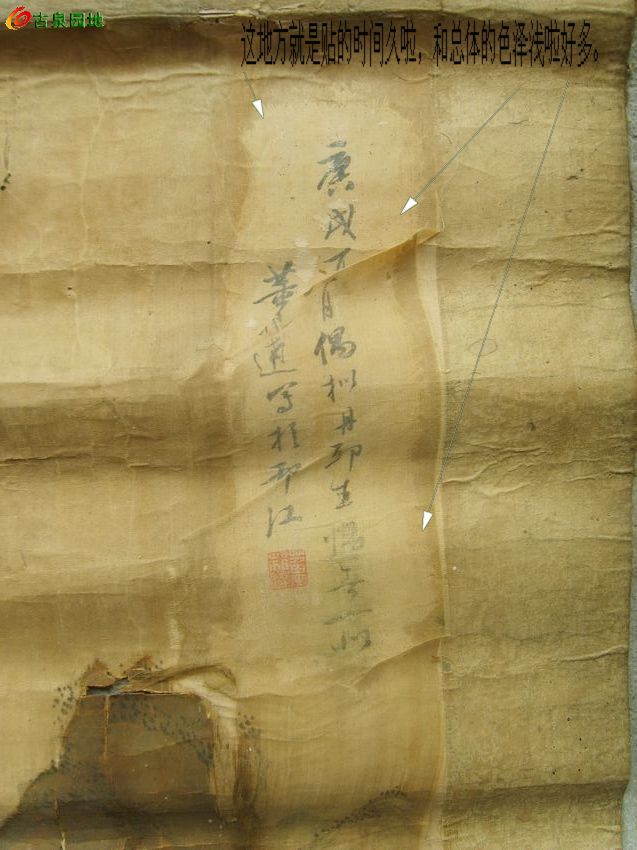 古泉园地
这地方就是贴的时间久啦，和总体的色泽浅啦好多。
庚戌丁月偶拟丹邱生
董 道写於邗江